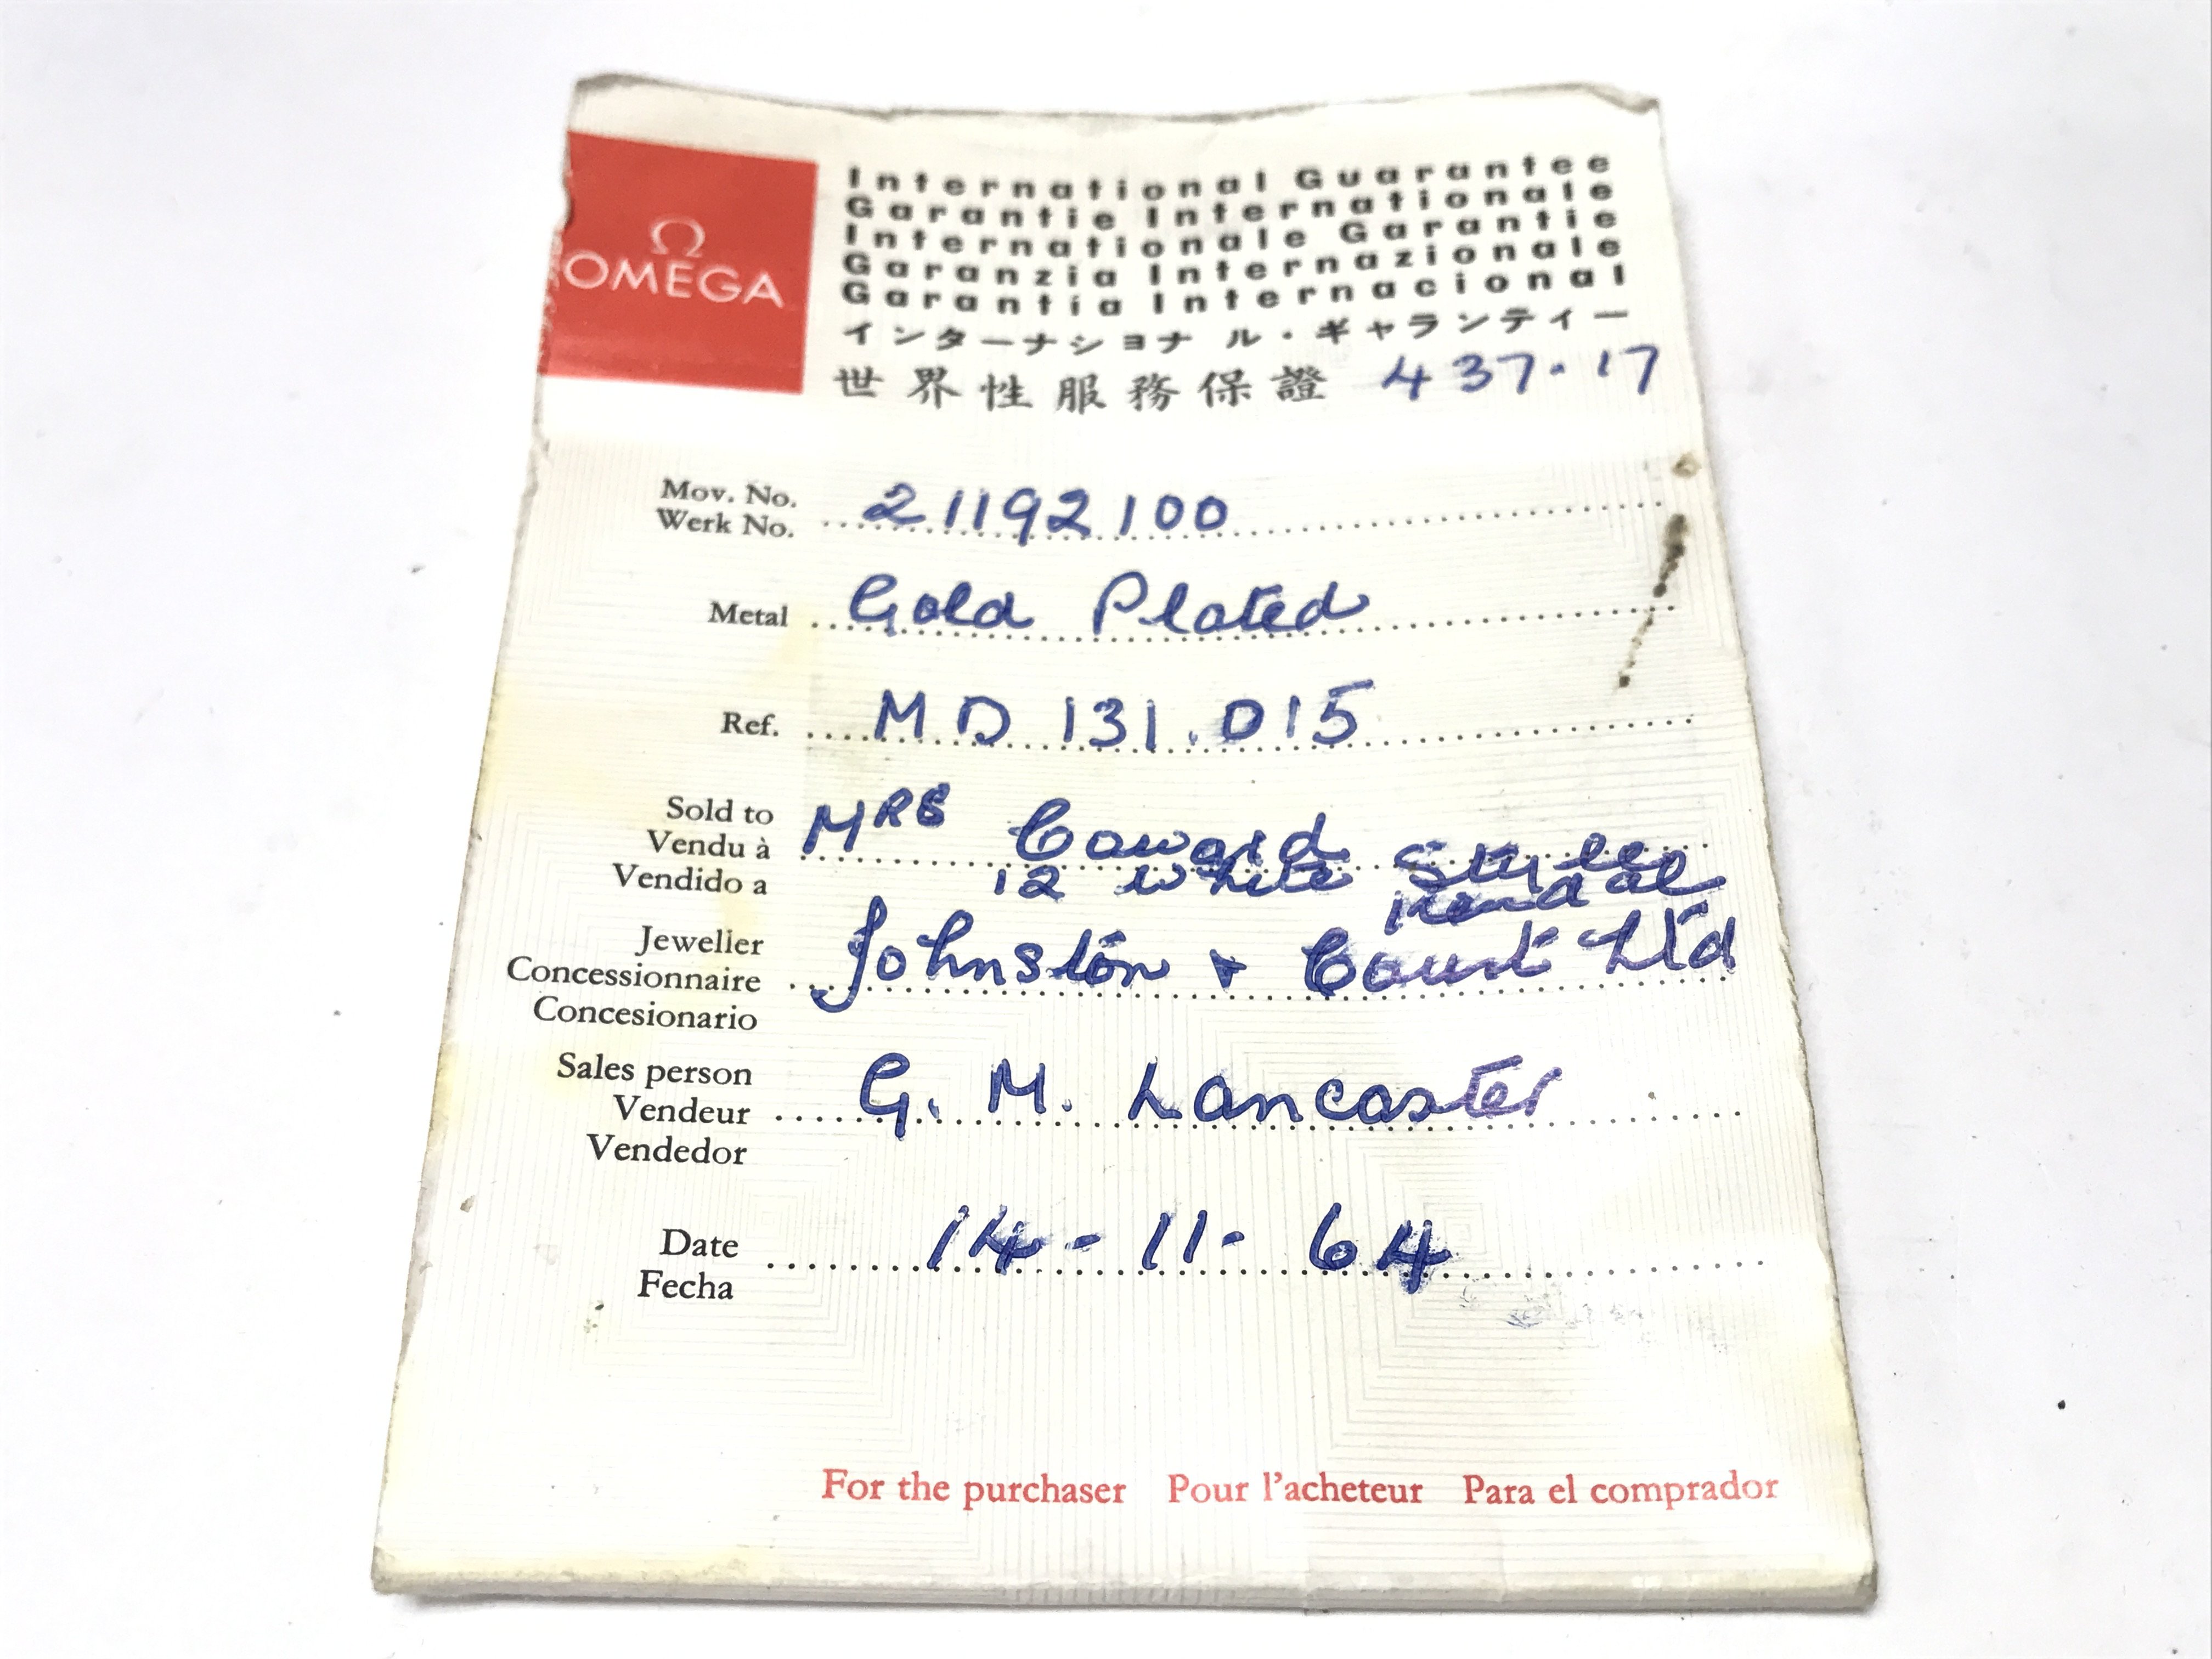 Ω
OMEGA
International Guarantee
Garantie Internationale
Internationale Garantie
Garanzia Internazionale
Garantía Internacional
インターナショナル・ギャランティー
世界性服務保證 437.17
Mov. No.
Werk No. 21192100
Metal Gold Plated
Ref. MD 131.015
Sold to
Vendu à MRS Coward
Vendido a 12 White
Jeweller
Concessionnaire Johnston + Court Ltd
Concesionario
Sales person
Vendeur G. M. Lancaster
Vendedor
Date 14-11-64
Fecha
For the purchaser Pour l'acheteur Para el comprador